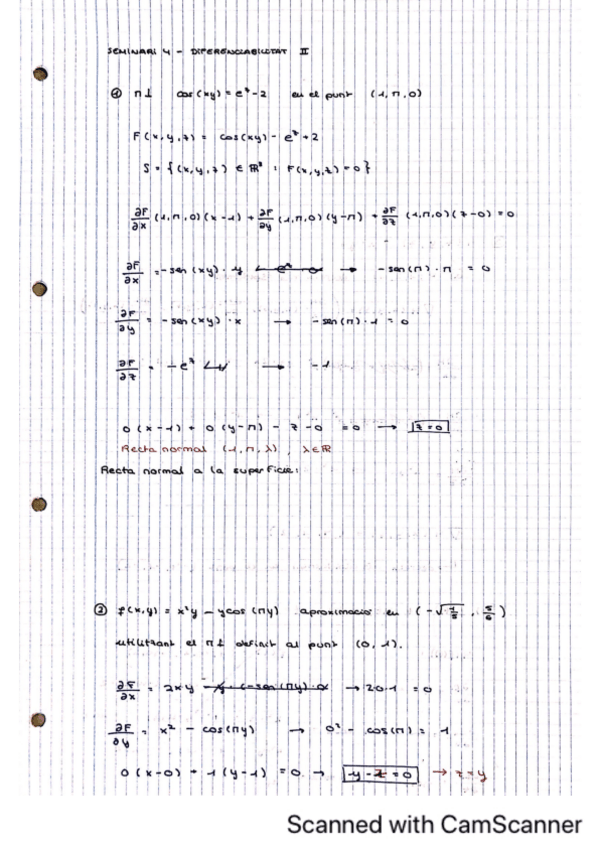 SEMINARI 4 - DIFERENCIABILITAT II
① π⊥ cos(xy) = e^z - 2 en el punt (1, π, 0)
F(x,y,z) = cos(xy) - e^z + 2
S = {(x,y,z) ∈ ℝ³ : F(x,y,z) = 0}
∂F/∂x (1,π,0)(x-1) + ∂F/∂y (1,π,0)(y-π) + ∂F/∂z (1,π,0)(z-0) = 0
∂F/∂x = -sen(xy) · y → -sen(π) · π = 0
∂F/∂y = -sen(xy) · x → -sen(π) · 1 = 0
∂F/∂z = -e^z → -1
0(x-1) + 0(y-π) - z-0 = 0 → z=0
Recta normal (1, π, λ), λ∈ℝ
Recta normal a la superficie:
② f(x,y) = x²y - ycos(πy) aproximació en (-√
utilitzant el π⊥ definit al punt (0, 1).
∂F/∂x = 2xy → 2·0·1 = 0
∂F/∂y = x² - cos(πy) → 0² - cos(π) = 1
0(x-0) + 1(y-1) = 0 → y-z=0 → z=y
Scanned with CamScanner